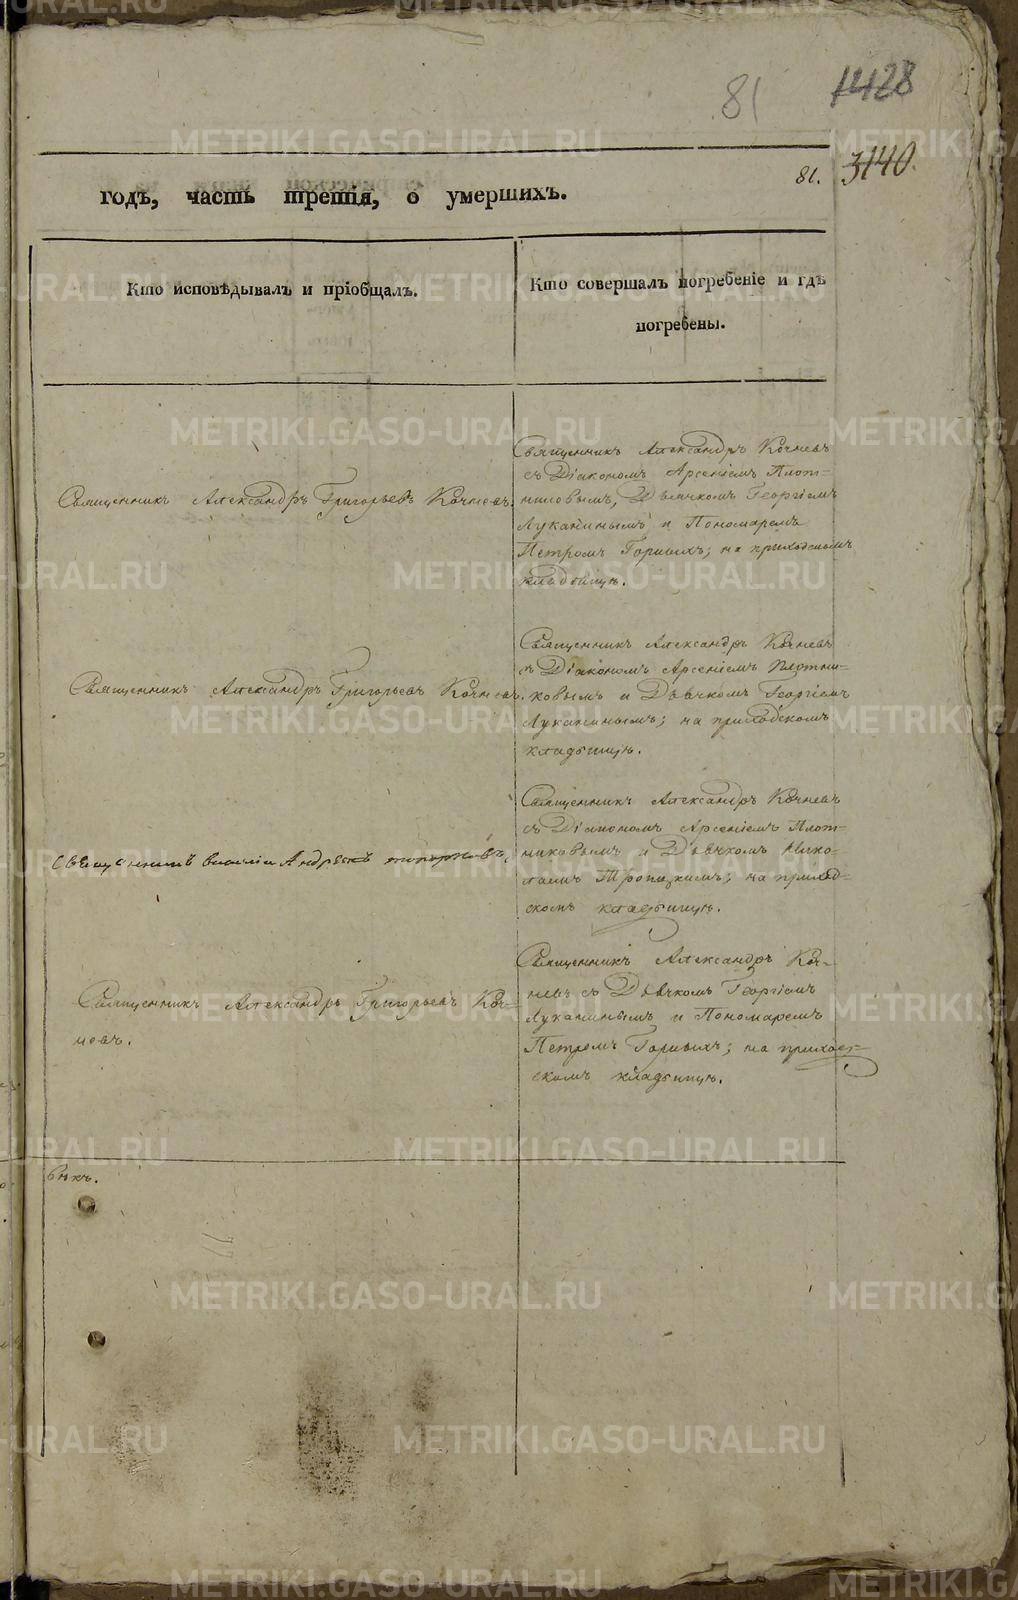 81
1428
81.
3140.
годъ, часть третія, о умершихъ.
Кто исповѣдывалъ и пріобщалъ.
Кто совершалъ погребеніе и гдѣ
погребены.
Священникъ Александръ Григорьевъ Кочневъ.
Священникъ Александръ Кочневъ
съ Діакономъ Арсеніемъ Плот-
никовымъ, Дьячкомъ Георгіемъ
Луканинымъ и Пономаремъ
Петромъ на приходскомъ
кладбищѣ.
Священникъ Александръ Григорьевъ Кочневъ.
Священникъ Александръ Кочневъ
съ Діакономъ Арсеніемъ Плотни-
ковымъ и Дьячкомъ Георгіемъ
Луканинымъ; на приходскомъ
кладбищѣ.
Андреевъ
Священникъ Александръ Кочневъ
съ Діакономъ Арсеніемъ Плот-
никовымъ и Дьячкомъ Нико-
лаемъ Троицкимъ; на приход-
скомъ кладбищѣ.
Священникъ Александръ Григорьевъ Коч-
невъ.
Священникъ Александръ Коч-
невъ съ Дьячкомъ Георгіемъ
Луканинымъ и Пономаремъ
Петромъ на приход-
скомъ кладбищѣ.
METRIKI.GASO-URAL.RU